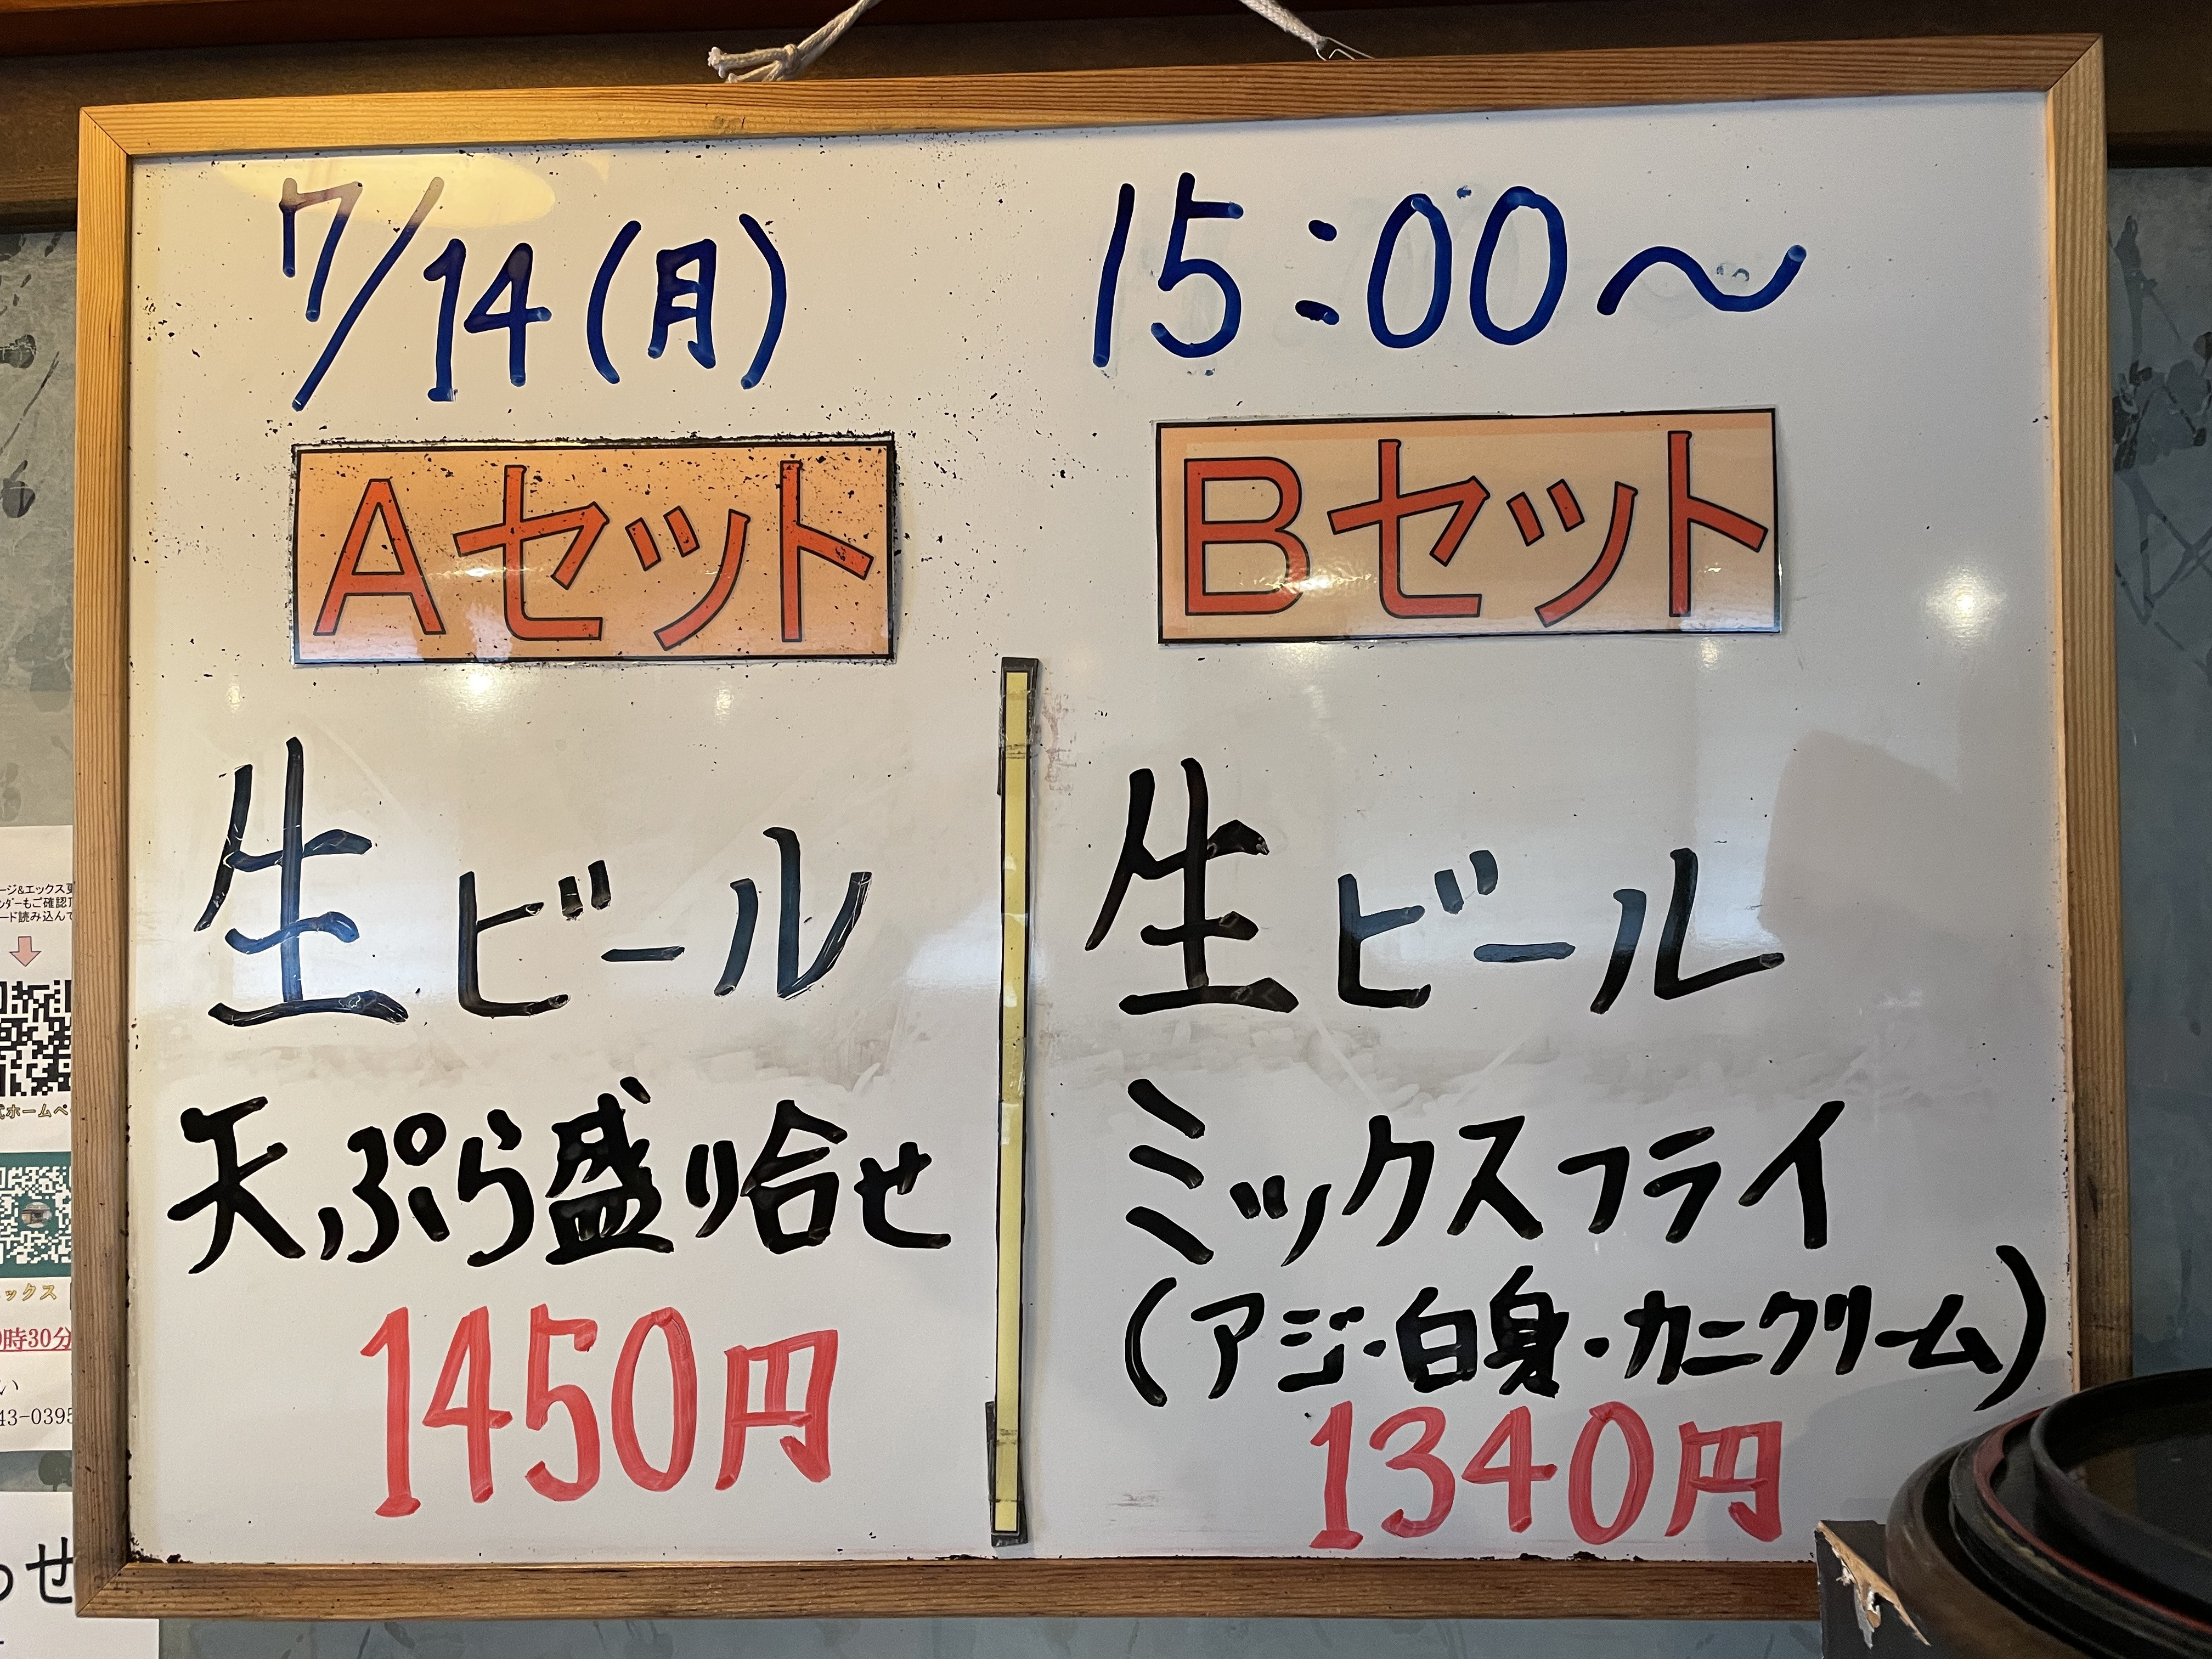 7/14(月) 15:00〜
Aセット
生ビール
天ぷら盛り合せ
1450円
Bセット
生ビール
ミックスフライ
(アジ・白身・カニクリーム)
1340円
ージ&エックス
ンダーもご確認
ード読み込んで
ホームペ
ックス
時30分
い
43-0395
わせ